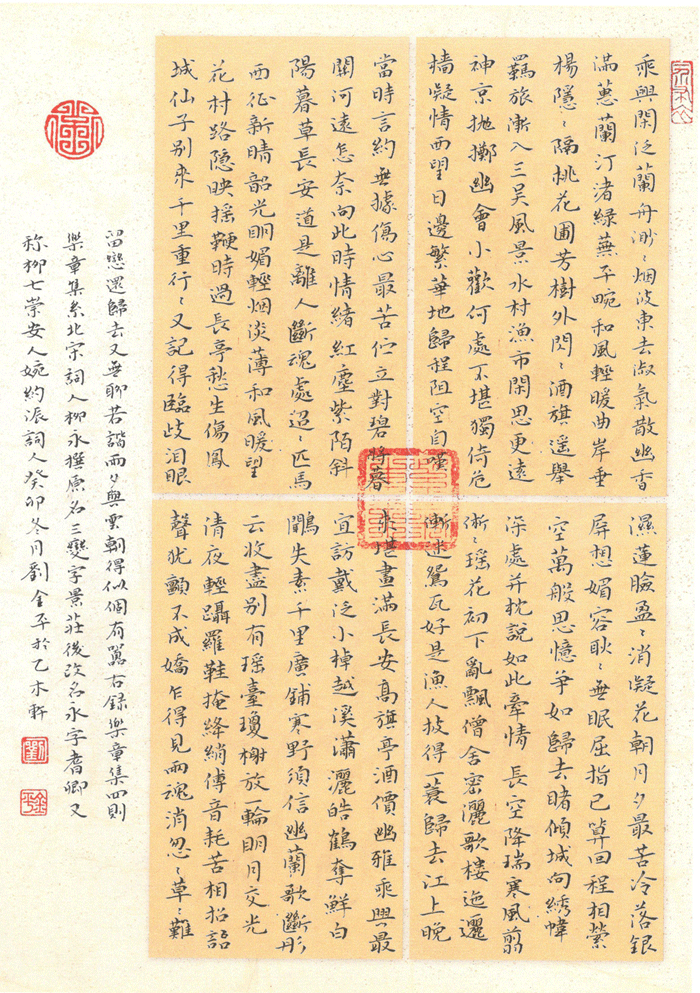 乘興閑泛蘭舟渺〻烟波東去淑氣散幽香
滿蕙蘭汀渚綠蕪平畹和風輕暖曲岸垂
楊隱〻隔桃花圃芳樹外閃〻酒旗遙舉
羈旅漸入三吳風景水村漁市閑思更遠
神京拋擲幽會小歡何處不堪獨倚危
檣凝情西望日邊繁華地歸程阻空自嘆
當時言約無據傷心最苦佇立對碧
將暮
關河遠怎奈向此時情緒紅塵紫陌斜
陽暮草長安道是離人斷魂處迢〻匹馬
西征新晴韶光明媚輕烟淡薄和風暖望
花村路隐映摇鞭時過長亭愁生傷鳳
城仙子別來千里重行〻又記得臨歧泪眼
濕蓮臉盈〻消凝花朝月夕最苦冷落銀
屏想媚容耿〻無眠屈指已算回程相縈
空萬般思憶爭如歸去睹傾城向綉幃
深處并枕說如此牽情 長空降瑞寒風剪
淅〻瑶花初下亂飄僧舍密灑歌樓迤邐
漸迷鴛瓦好是漁人披得一蓑歸去江上晚
來堪畫滿長安高旗亭酒價幽雅乘興最
宜訪戴泛小棹越溪瀟灑皓鶴奪鮮白
鷴失素千里廣鋪寒野須信幽蘭歌斷彤
云收盡別有瑶臺瓊榭放一輪明月交光
清夜輕躡羅鞋掩絳綃傳音耗苦相招語
聲犹顫不成嬌乍得見兩魂消忽〻草〻難
留戀還歸去又無聊若諧雨夕與雲朝得似個有囂
古錄樂章集四則
樂章集系北宋詞人柳永撰原名三變字景莊後改名永字耆卿又
称柳七崇安人婉約派詞人癸卯冬月劉金平於乙木軒